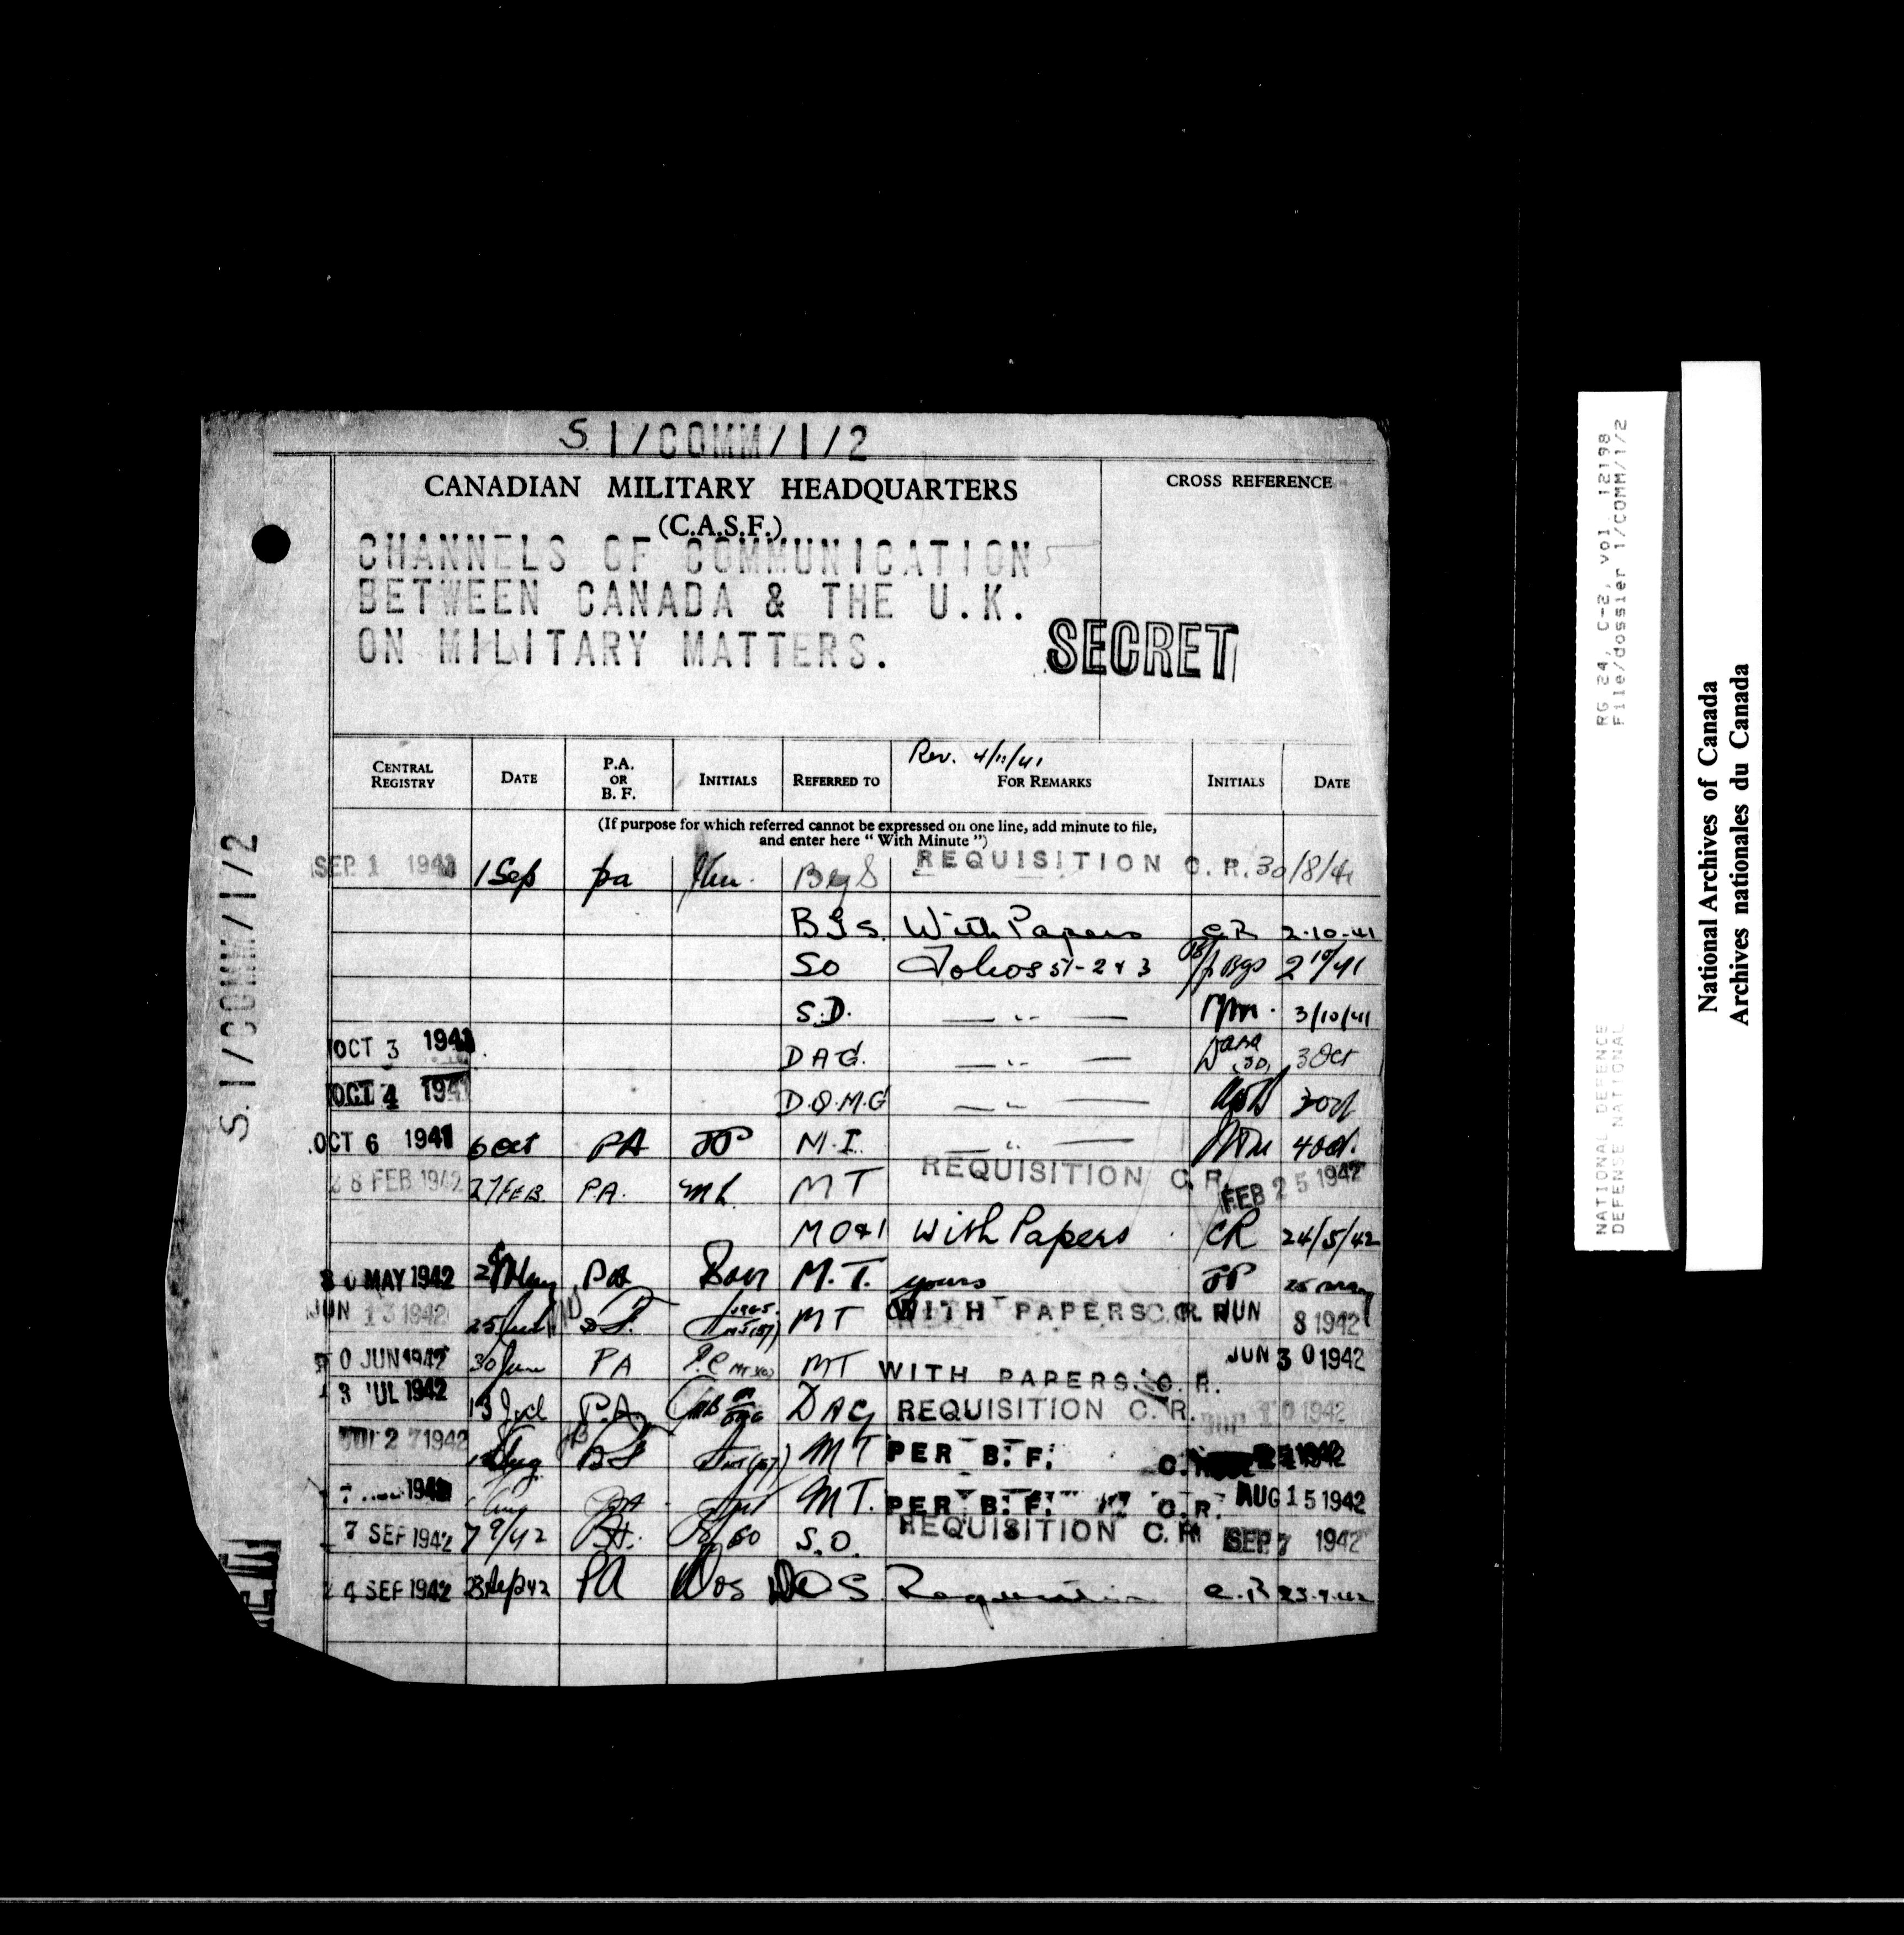 S. 1/COMM/1/2
CANADIAN MILITARY HEADQUARTERS
(C.A.S.F.)
CROSS REFERENCE
CHANNELS OF COMMUNICATION
BETWEEN CANADA & THE U.K.
ON MILITARY MATTERS.
SECRET
Rev. 4/11/41
CENTRAL REGISTRY DATE P.A. OR B. F. INITIALS REFERRED TO FOR REMARKS INITIALS DATE
(If purpose for which referred cannot be expressed on one line, add minute to file,
and enter here "With Minute")
SEP 1 1941 1 Sep pa BGS REQUISITION C.R. 30/8/41
BGS. With Papers C.R 2-10-41
SO Folios 51-2 & 3 BGS 2/10/41
S.D. — " — 3/10/41
OCT 3 1941 DAG. — " — 3 Oct
OCT 4 1941 D.Q.M.G — " — 3 Oct
OCT 6 1941 6 Oct PA JP M.I. — " — 4 Oct.
28 FEB 1942 27 FEB. P.A. MT REQUISITION C.R. FEB 25 1942
MO&I With Papers CR 24/5/42
30 MAY 1942 May PA M.T. yours JP 25 May
JUN 13 1942 25 MT WITH PAPERS C.R. JUN 8 1942
30 JUN 1942 30 June PA MT WITH PAPERS C.R. JUN 30 1942
13 JUL 1942 13 Jul P.A. DAG REQUISITION C.R. 10 1942
JUL 27 1942 Aug BF MT PER B.F. C.R. 1942
1942 Aug PA MT. PER B.F. C.R. AUG 15 1942
7 SEP 1942 7/9/42 S.O. REQUISITION C.R. SEP 7 1942
24 SEP 1942 23 Sep 42 PA DOS DOS Requisition C.R 23.9.42
S. 1/COMM/1/2
RG 24, C-2, vol. 12198
File/dossier 1/COMM/1/2
NATIONAL DEFENCE
DEFENSE NATIONAL
National Archives of Canada
Archives nationales du Canada